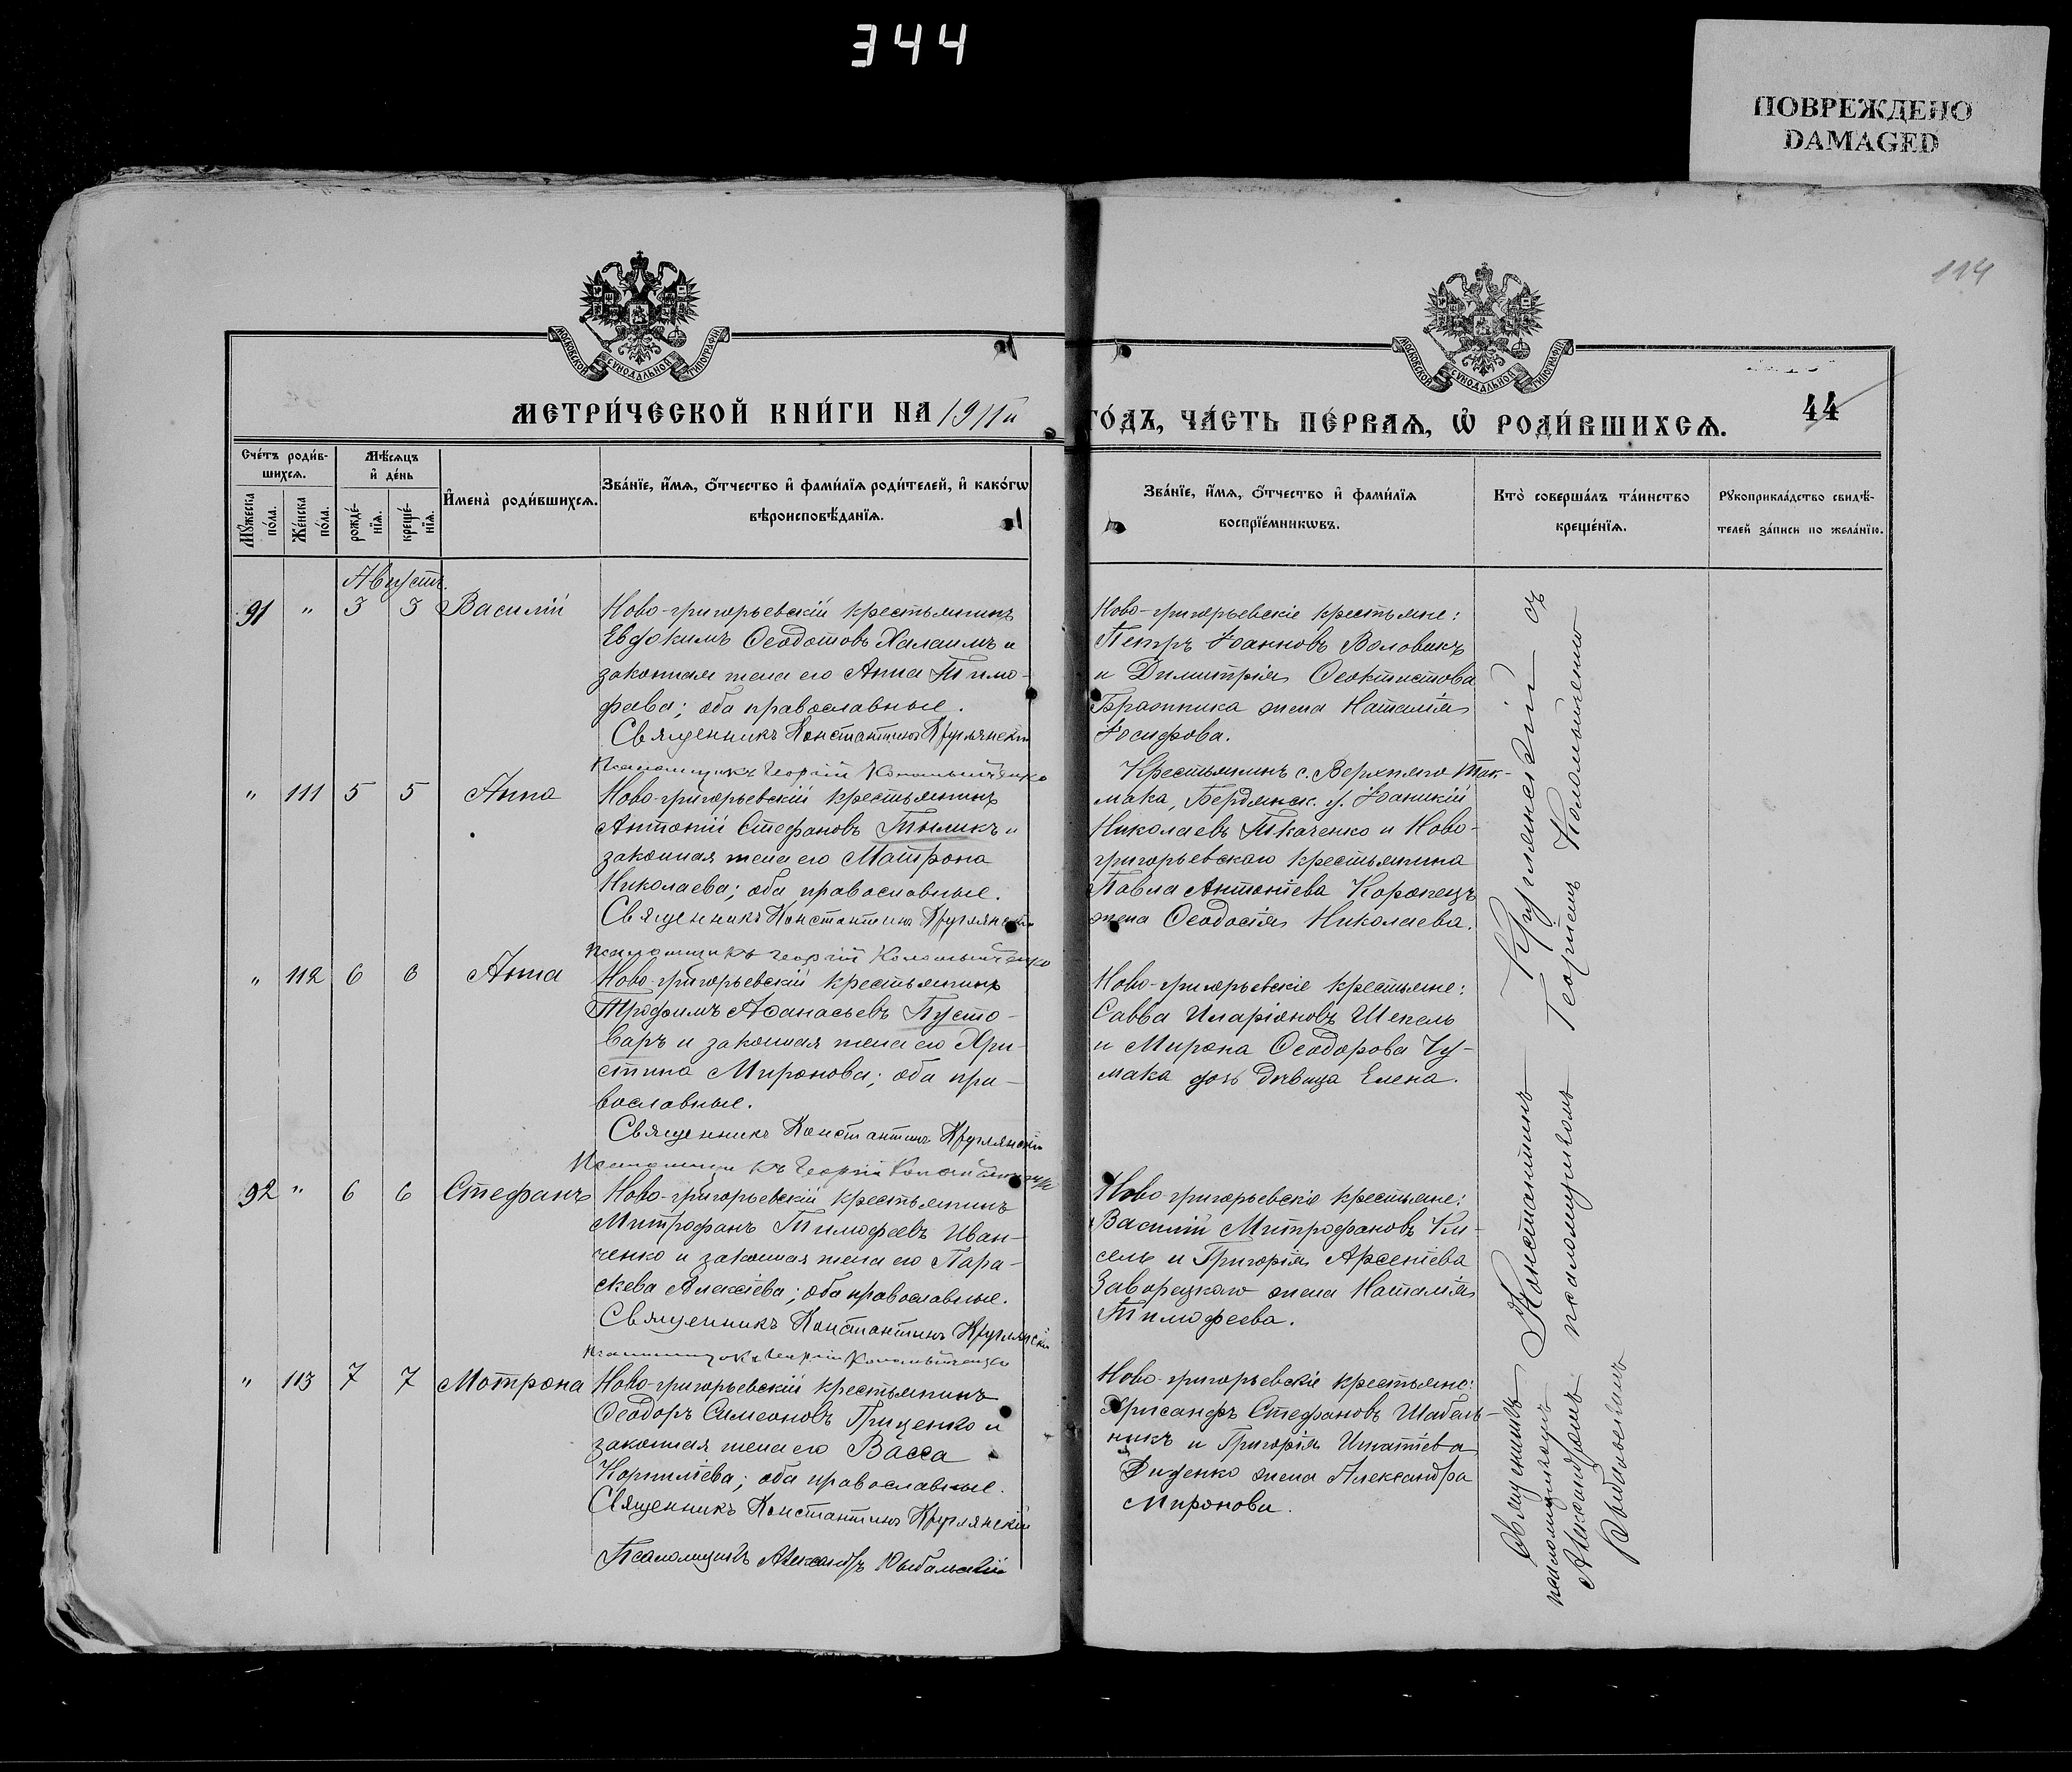 344
ПОВРЕЖДЕНО
DAMAGED
114
МОСКОВСКОЙ СѴНОДАЛЬНОЙ ТИПОГРАФІИ
МОСКОВСКОЙ СѴНОДАЛЬНОЙ ТИПОГРАФІИ
МЕТРИ́ЧЕСКОЙ КНИ́ГИ НА 1911й
ГО́ДЪ, ЧА́СТЬ ПЕ́РВАѦ, Ѽ РОДИ́ВШИХСѦ.
44
Сче́тъ роди́в-
шихсѧ.
Мꙋ́жеска по́ла.
Же́нска по́ла.
Мѣ́сѧцъ
и҆ де́нь
рожде́-
нїѧ.
креще́-
нїѧ.
И҆мена̀ роди́вшихсѧ.
Зва́нїе, и҆́мѧ, ѻ҆́тчество и҆ фами́лїѧ роди́телей, и҆ како́гѡ
вѣроисповѣ́данїѧ.
Зва́нїе, и҆́мѧ, ѻ҆́тчество и҆ фами́лїѧ
воспрїе́мникѡвъ.
Кто̀ соверша́лъ та́инство
креще́нїѧ.
Рꙋкоприкла́дство свидѣ́-
телей за́писи по жела́нїю.
Августъ.
91 " 3 3 Василій
Ново-григорьевскій крестьянинъ
Евфокимъ Ѳеодотовъ Халаимъ и
законная жена его Анна Тимо-
феева; оба православные.
Священникъ Константинъ Круглянскій
Псаломщикъ Георгій Коломыйченко
Ново-григорьевскіе крестьяне:
Петръ Іоанновъ Воловикъ
и Димитрія Ѳеоктистова
Бражника жена Наталія
Іосифова.
" 111 5 5 Анна
Ново-григорьевскій крестьянинъ
Антоній Стефановъ Тыликъ и
законная жена его Матрона
Николаева; оба православные.
Священникъ Константинъ Круглянскій
Псаломщикъ Георгій Коломыйченко
Крестьянинъ с. Верхняго Ток-
мака, Бердянск. у. Іоаникій
Николаевъ Ткаченко и Ново-
григорьевскаго крестьянина
Павла Антоніева Коропецъ
жена Ѳеодосія Николаева.
" 112 6 6 Анна
Ново-григорьевскій крестьянинъ
Трофимъ Аѳанасьевъ Пусто-
варъ и законная жена его Хри-
стина Миронова; оба пра-
вославные.
Священникъ Константинъ Круглянскій
Псаломщикъ Георгій Коломыйченко
Ново-григорьевскіе крестьяне:
Савва Иларіоновъ Шепель
и Мирона Ѳеодорова Чу-
мака дочь дѣвица Елена.
92 " 6 6 Стефанъ
Ново-григорьевскій крестьянинъ
Митрофанъ Тимофеевъ Иван-
ченко и законная жена его Пара-
скева Алексіева; оба православные.
Священникъ Константинъ Круглянскій
Псаломщикъ Георгій Коломыйченко
Ново-григорьевскіе крестьяне:
Василій Митрофановъ Ки-
сель и Григорія Арсеніева
Заворецкаго жена Наталія
Тимофеева.
" 113 7 7 Мотрона
Ново-григорьевскій крестьянинъ
Ѳеодоръ Симеоновъ Гриценко и
законная жена его Васса
Корниліева; оба православные.
Священникъ Константинъ Круглянскій
Псаломщикъ Александръ Рыбальскій
Ново-григорьевскіе крестьяне:
Хрисанфъ Стефановъ Шабель-
никъ и Григорія Игнатіева
Диденко жена Александра
Миронова.
Священникъ Константинъ Круглянскій съ
псаломщикомъ Георгіемъ Коломыйченко
псаломщикомъ
Александромъ
Рыбальскимъ